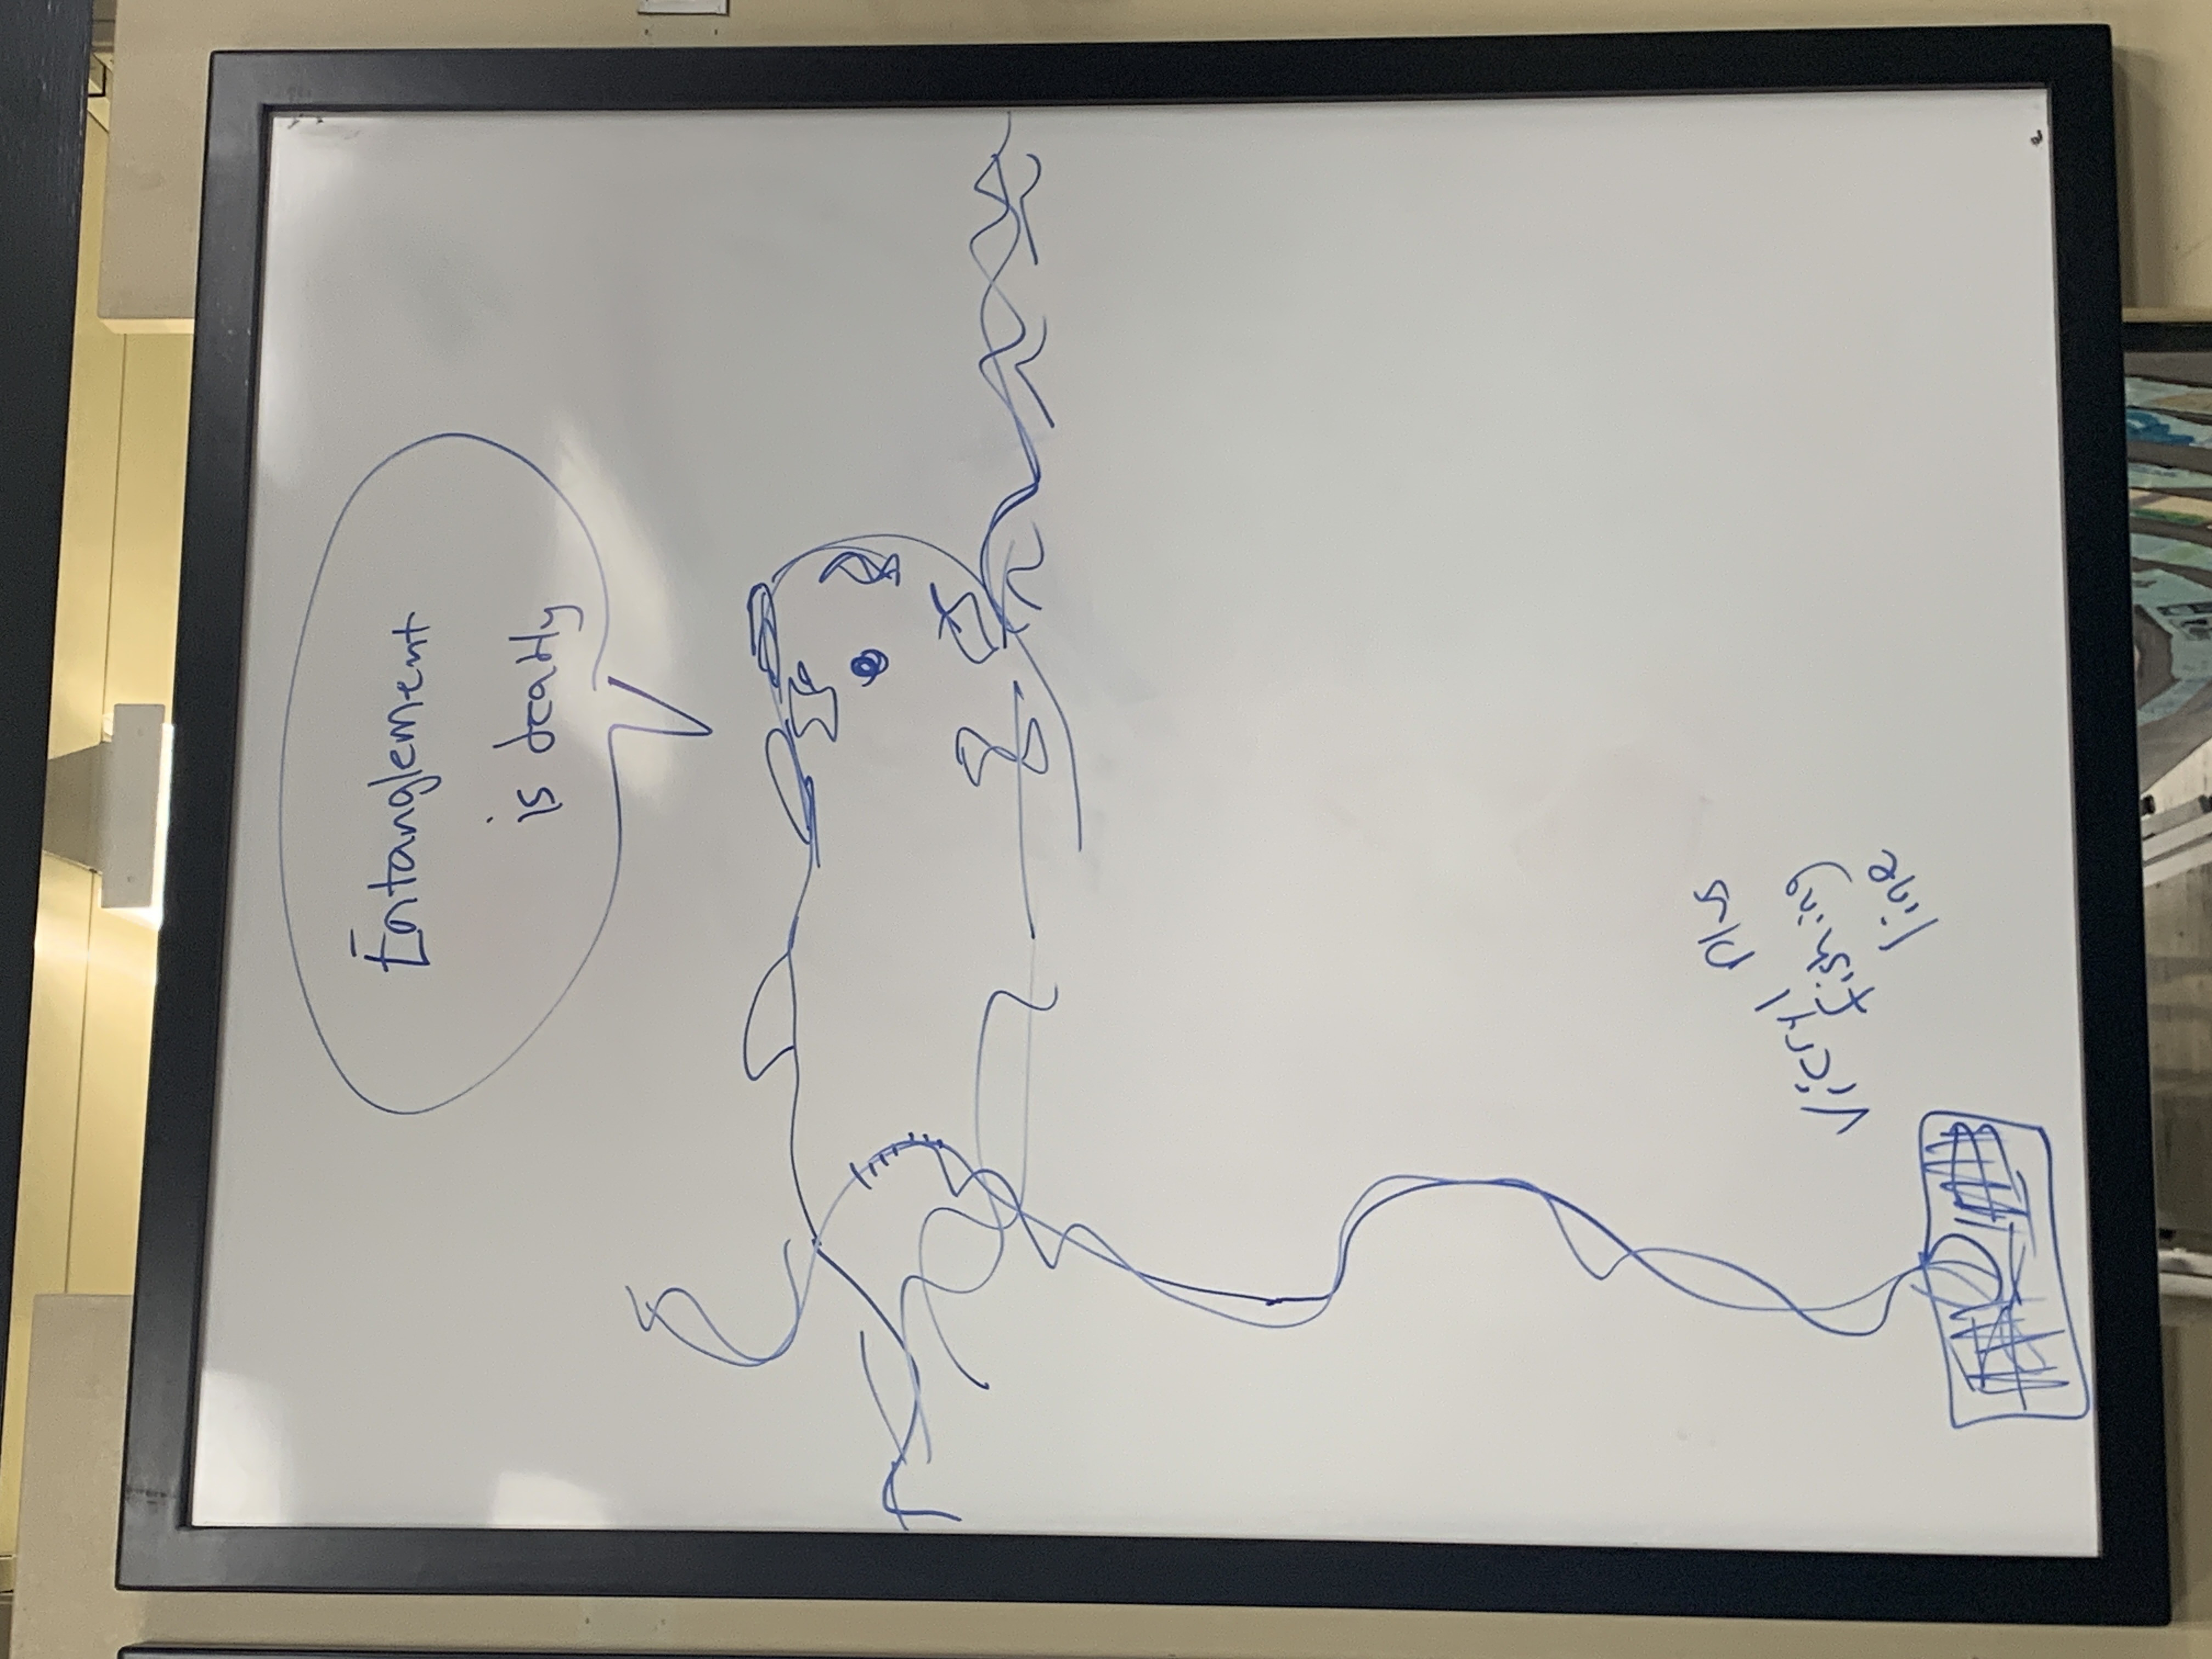 Entanglement
is deadly
Vicryl Plus
fishing
line